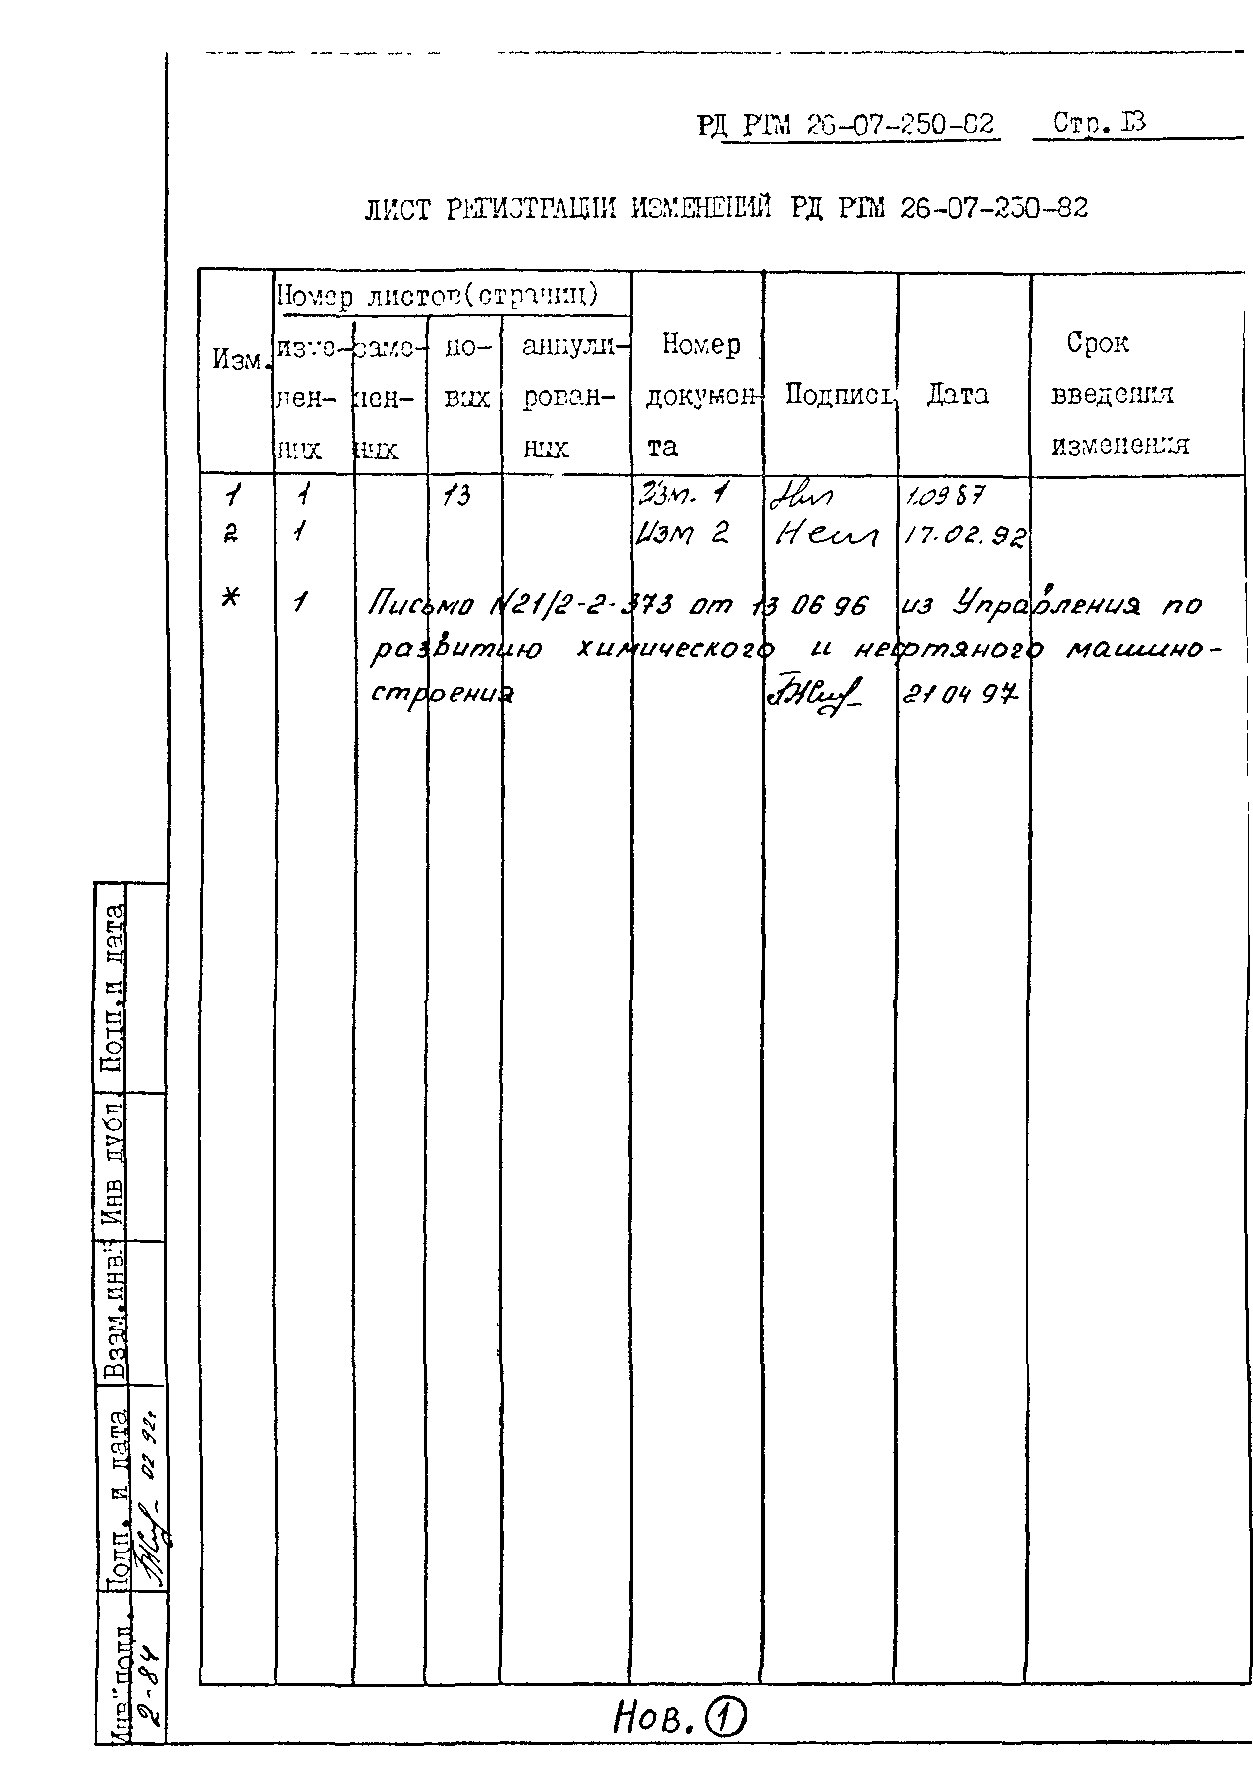 РД РТМ 26-07-250-82 Стр. 13
ЛИСТ РЕГИСТРАЦИИ ИЗМЕНЕНИЙ РД РТМ 26-07-250-82
Изм.
Номер листов(страниц)
изме-
нен-
них
заме-
нен-
ных
но-
вых
аннули-
рован-
них
Номер
докумен-
та
Подпись
Дата
Срок
введения
изменения
1 1 13 Изм. 1 1.09 87
2 1 Изм 2 17.02.92
* 1 Письмо N21/2-2-373 от 13 06 96 из Управления по
развитию химического и нефтяного машино-
строения 21 04 97
Подп.и дата
Инв дубл.
Взам.инв.
Подп. и дата
02 92г.
Инв подл.
2-84
Нов. 1